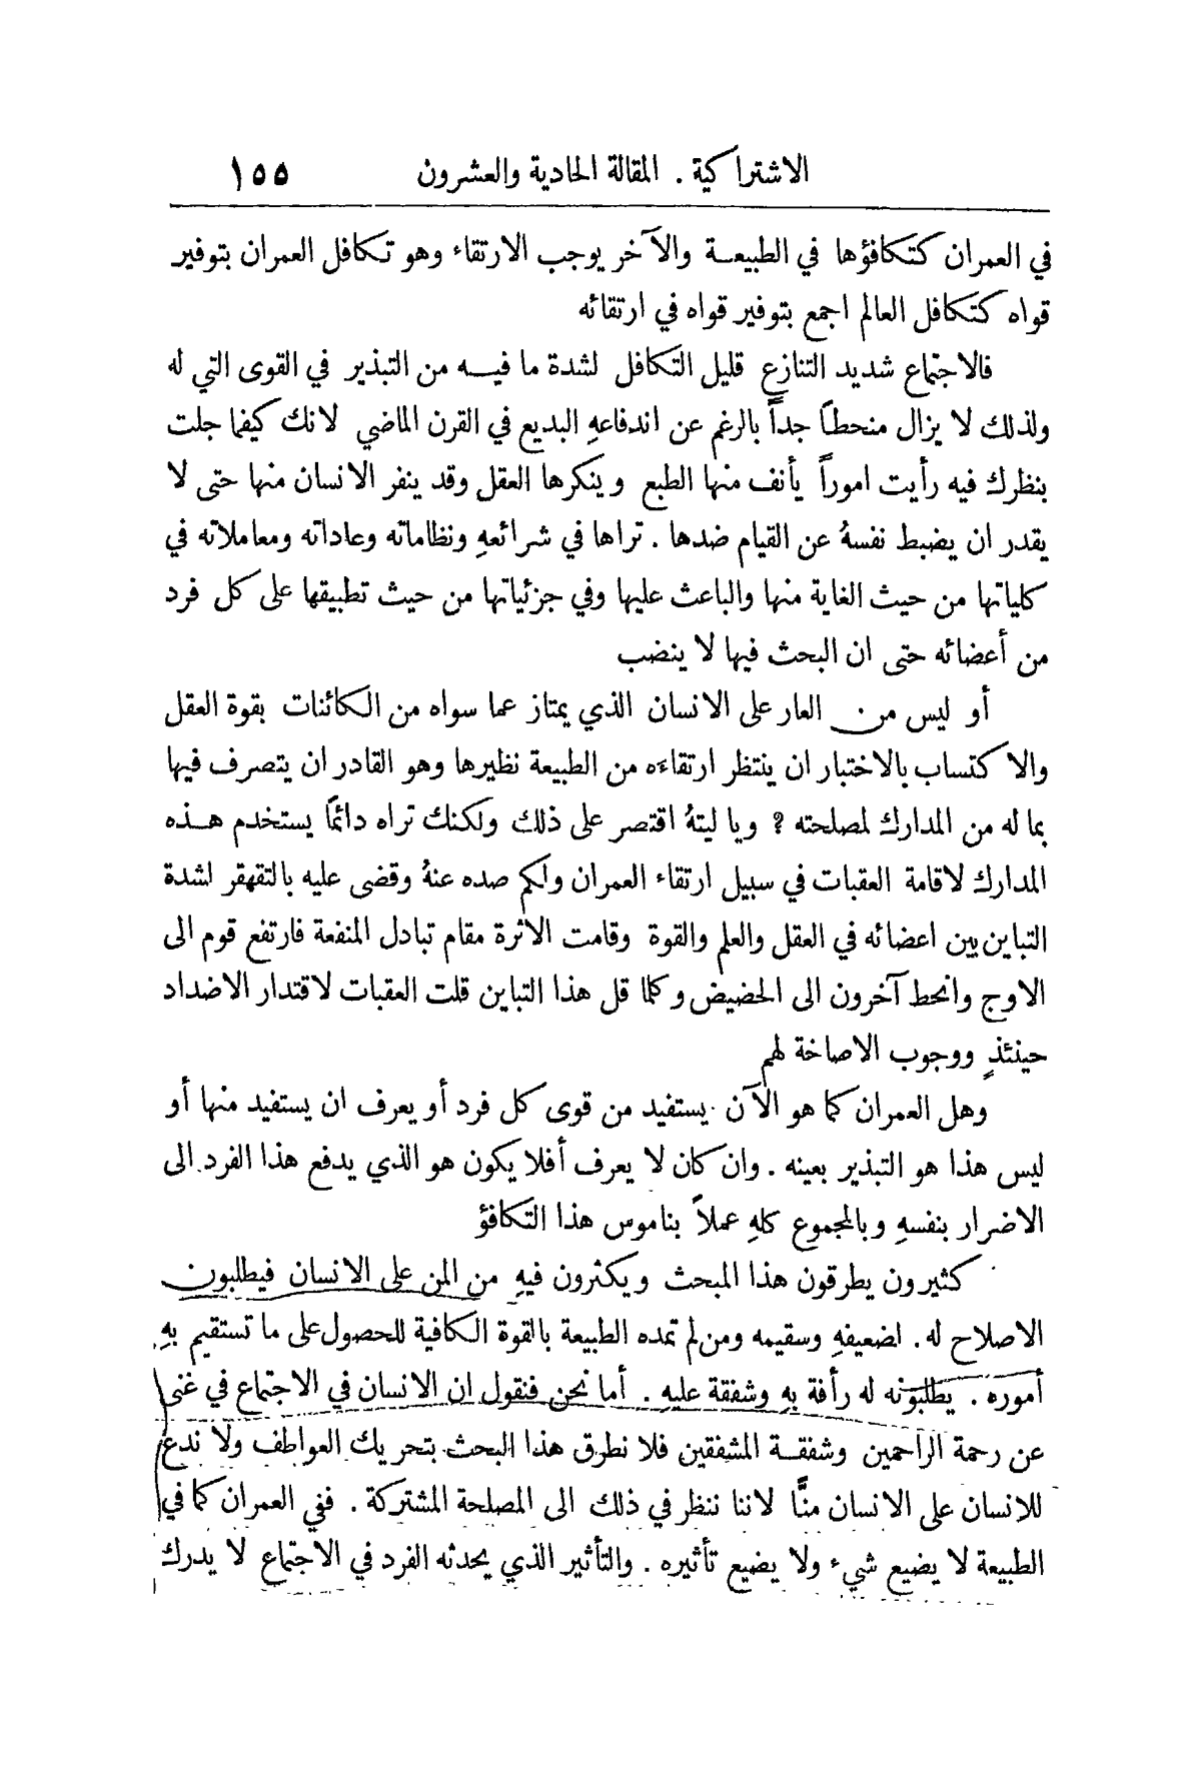 الاشتراكية . المقالة الحادية والعشرون ١٥٥
في العمران كتكافؤها في الطبيعة والآخر يوجب الارتقاء وهو تكافل العمران بتوفير
قواه كتكافل العالم اجمع بتوفير قواه في ارتقائه
فالاجتماع شديد التنازع قليل التكافل لشدة ما فيه من التبذير في القوى التي له
ولذلك لا يزال منحطاً جداً بالرغم عن اندفاعهِ البديع في القرن الماضي لانك كيفما جلت
بنظرك فيه رأيت اموراً يأنف منها الطبع وينكرها العقل وقد ينفر الانسان منها حتى لا
يقدر ان يضبط نفسهُ عن القيام ضدها . تراها في شرائعهِ ونظاماته وعاداته ومعاملاته في
كلياتها من حيث الغاية منها والباعث عليها وفي جزئياتها من حيث تطبيقها على كل فرد
من أعضائه حتى ان البحث فيها لا ينضب
أو ليس من العار على الانسان الذي يمتاز عما سواه من الكائنات بقوة العقل
والاكتساب بالاختبار ان ينتظر ارتقاءه من الطبيعة نظيرها وهو القادر ان يتصرف فيها
بما له من المدارك لمصلحته ؟ ويا ليتهُ اقتصر على ذلك ولكنك تراه دائماً يستخدم هذه
المدارك لاقامة العقبات في سبيل ارتقاء العمران ولكم صده عنهُ وقضى عليه بالتقهقر لشدة
التباين بين اعضائه في العقل والعلم والقوة وقامت الاثرة مقام تبادل المنفعة فارتفع قوم الى
الاوج وانحط آخرون الى الحضيض وكلما قل هذا التباين قلت العقبات لاقتدار الاضداد
حينئذٍ ووجوب الاصاخة لهم
وهل العمران كما هو الآن يستفيد من قوى كل فرد أو يعرف ان يستفيد منها أو
ليس هذا هو التبذير بعينه . وان كان لا يعرف أفلا يكون هو الذي يدفع هذا الفرد الى
الاضرار بنفسهِ وبالمجموع كلهِ عملاً بناموس هذا التكافؤ
كثيرون يطرقون هذا المبحث ويكثرون فيهِ من المن على الانسان فيطلبون
الاصلاح له . لضعيفهِ وسقيمه ومن لم تمده الطبيعة بالقوة الكافية للحصول على ما تستقيم بهِ
أموره . يطلبونه له رأفة بهِ وشفقة عليهِ . أما نحن فنقول ان الانسان في الاجتماع في غنى
عن رحمة الراحمين وشفقة المشفقين فلا نطرق هذا البحث بتحريك العواطف ولا ندع
للانسان على الانسان منًّا لاننا ننظر في ذلك الى المصلحة المشتركة . ففي العمران كما في
الطبيعة لا يضيع شيء ولا يضيع تأثيره . والتأثير الذي يحدثه الفرد في الاجتماع لا يدرك